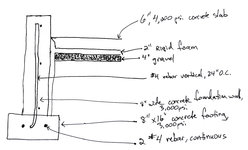 6", 4,000 psi concrete slab
2" rigid foam
4" gravel
#4 rebar vertical, 24" O.C.
8" wide concrete foundation wall,
3,000 psi
8" x 16" concrete footing,
3,000 psi
2 #4 rebar, continuous